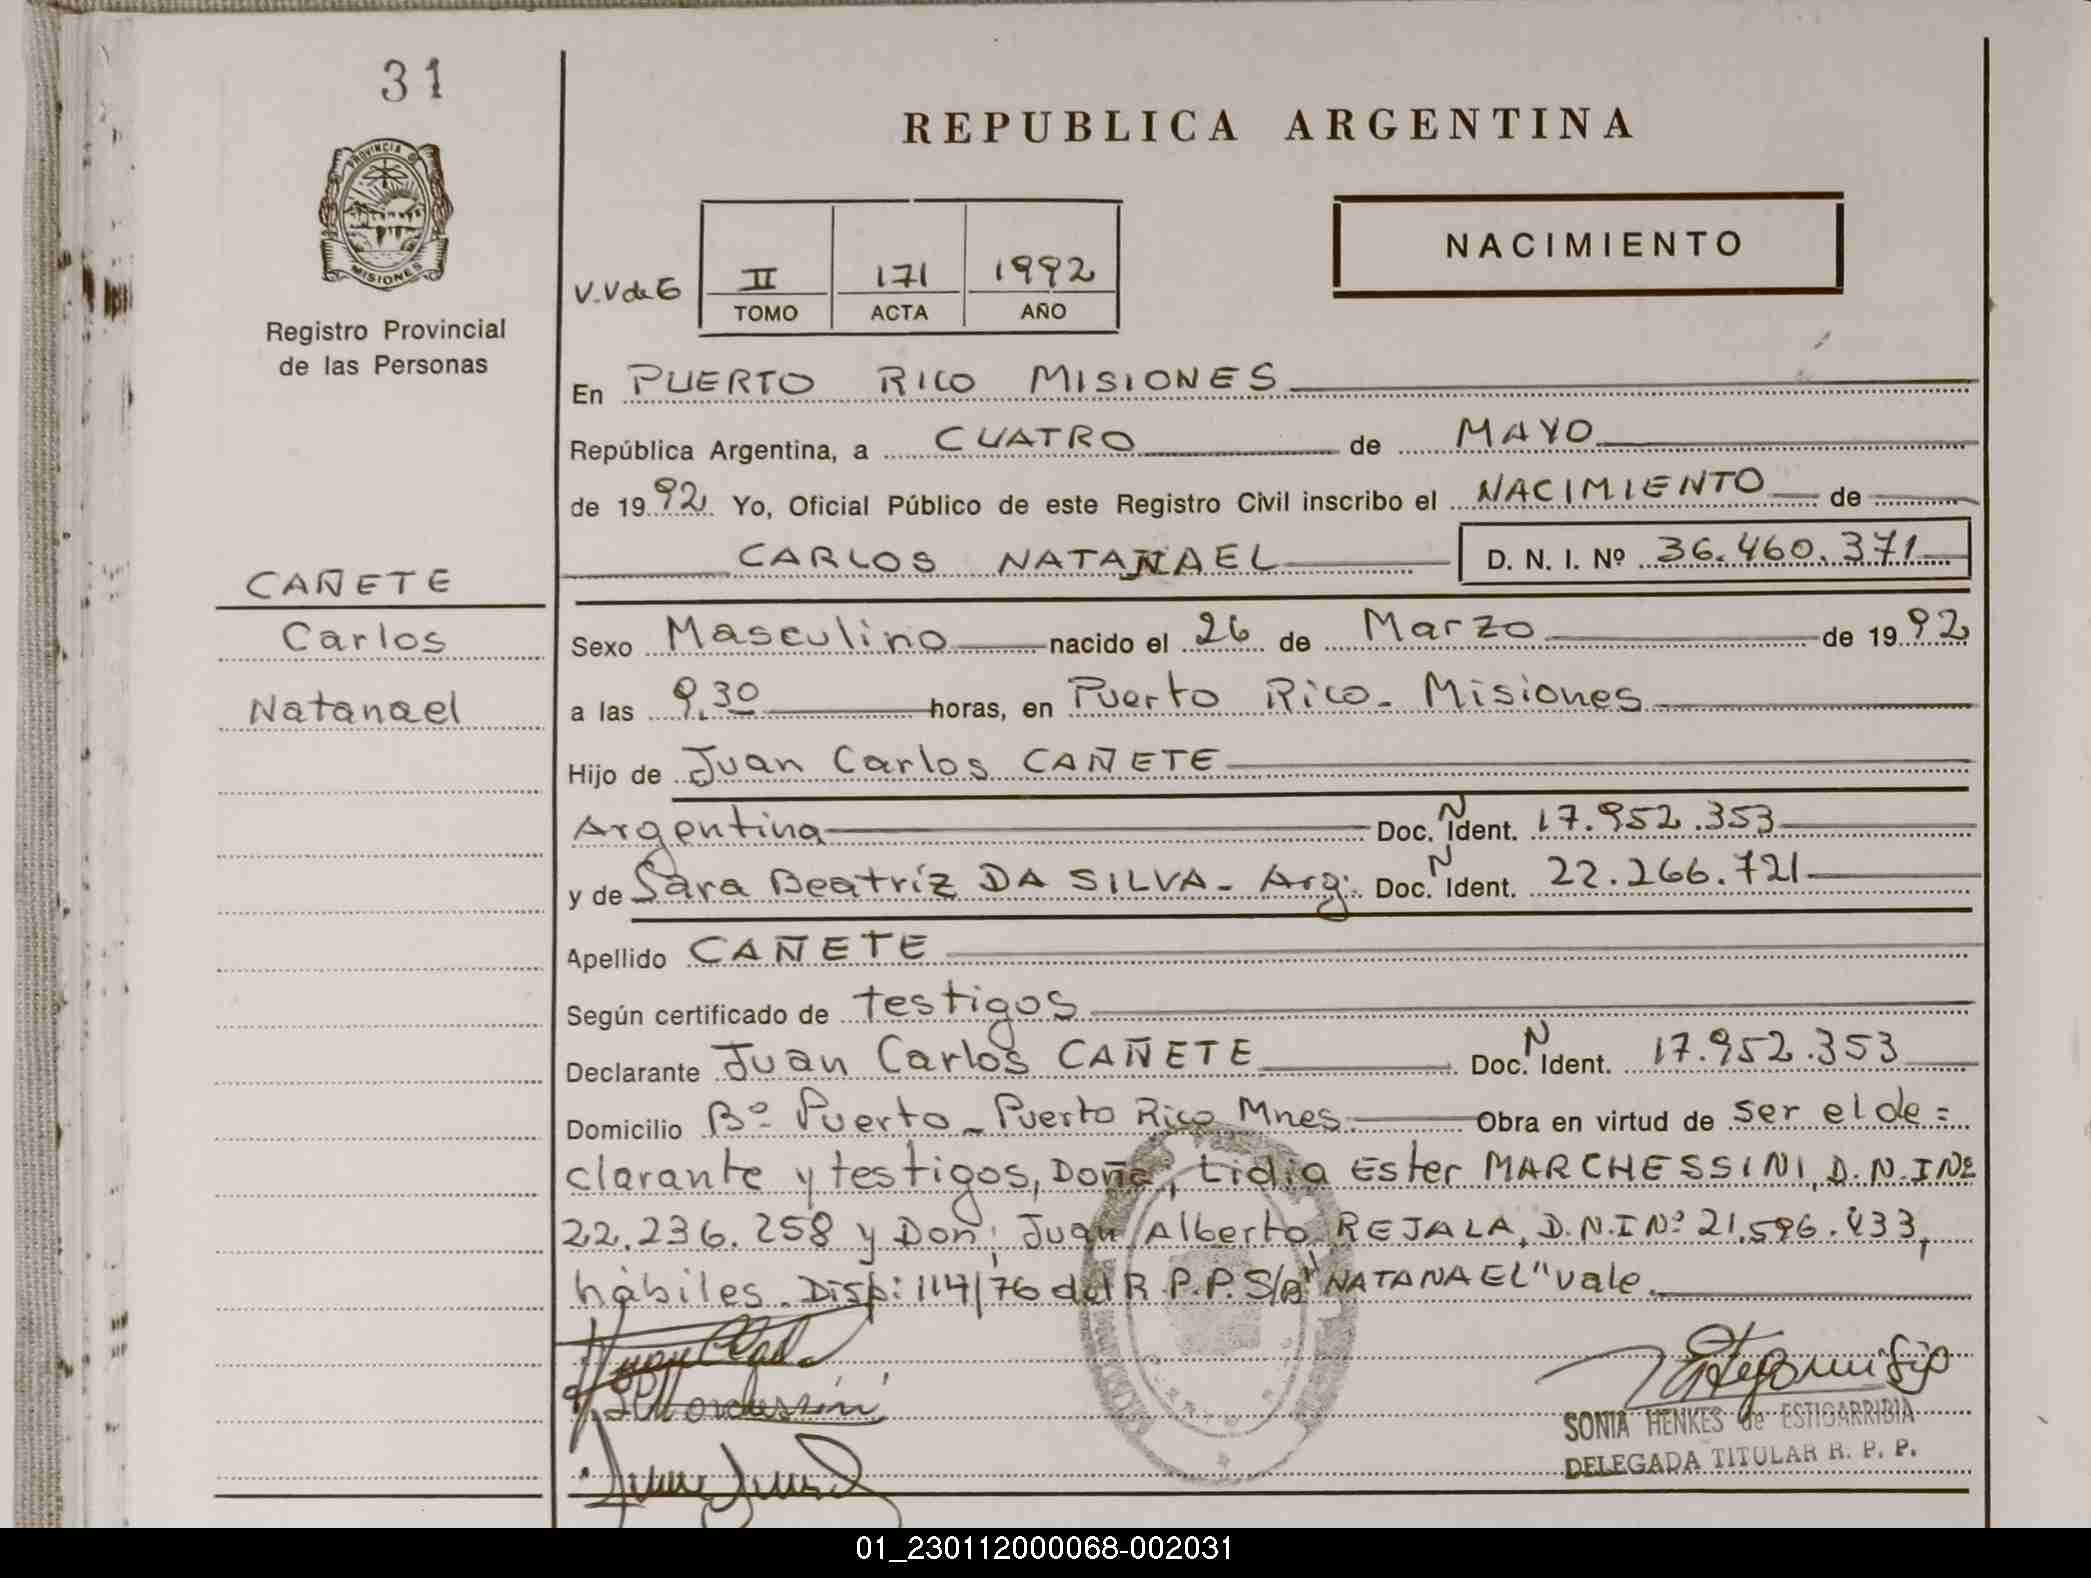 31
REPUBLICA ARGENTINA
PROVINCIA DE
MISIONES
Registro Provincial
de las Personas
NACIMIENTO
V.V de E
II 171 1992
TOMO ACTA AÑO
En PUERTO RICO MISIONES
República Argentina, a CUATRO de MAYO
de 1992 Yo, Oficial Público de este Registro Civil inscribo el NACIMIENTO de
CARLOS NATANAEL D. N. I. Nº 36.460.371
CAÑETE
Carlos
Natanael
Sexo Masculino nacido el 26 de Marzo de 1992
a las 9.30 horas, en Puerto Rico - Misiones
Hijo de Juan Carlos CAÑETE
Argentina Doc. N Ident. 17.952.353
y de Sara Beatríz DA SILVA - Arg. Doc. N Ident. 22.266.721
Apellido CAÑETE
Según certificado de testigos
Declarante Juan Carlos CAÑETE Doc. N Ident. 17.952.353
Domicilio Bº Puerto - Puerto Rico Mnes Obra en virtud de ser el de=
clarante y testigos, Doña; Lidia Ester MARCHESSINI, D.N.I Nº
22.236.258 y Don; Juan Alberto REJALA, D.N.I Nº 21.596.433,
hábiles. Disp: 114/76 del R.P.P. S/R "NATANAEL" vale.
SONIA HENKES de ESTIGARRIBIA
DELEGADA TITULAR R. P. P.
01_230112000068-002031